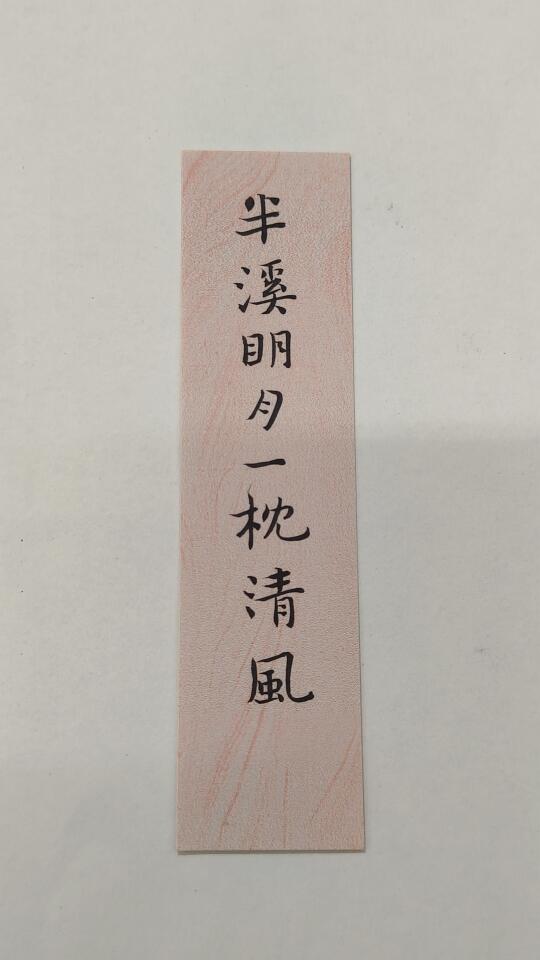 半溪明月一枕清風